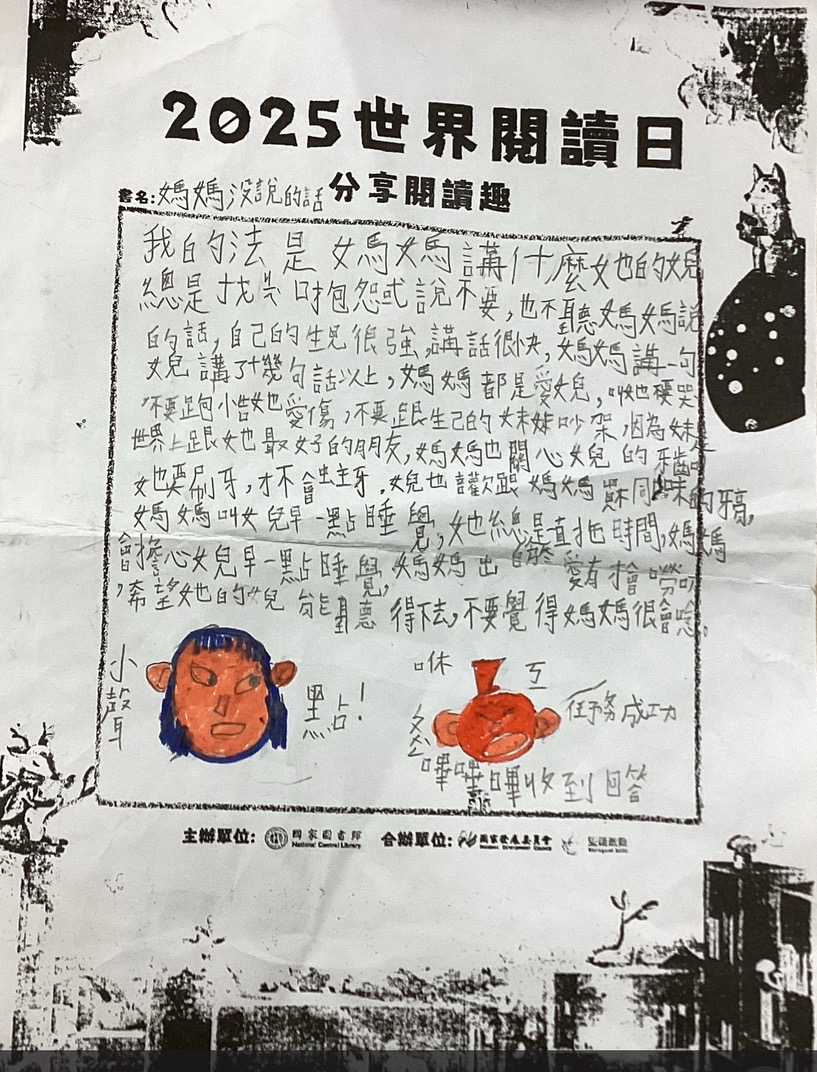 2025世界閱讀日
書名:媽媽沒說的話 分享閱讀趣
我的法是媽媽講什麼她的女兒
總是找 說不要,也不聽媽媽說
的話,自己的生 很強,講話很快,媽媽講一句
女兒講了十幾句話以上,媽媽都是愛女兒,叫她不要哭
不要跑小 她愛傷,不要跟生己的妹妹吵架,因為妹是
世界上跟她最好的朋友,媽媽也關心女兒的牙齒
她要刷牙,才不會蛀牙,女兒也讙歡跟媽媽 同 味的牙膏,
媽媽叫女兒早一點睡覺,她總是直拖時間,媽媽
會擔心女兒早一點睡覺,媽媽出自於愛有才會嘮叨
,希望她的女兒能聽得下去,不要覺得媽媽很會唸。
小聲
點!
咻
互
任務成功
嗶嗶嗶收到回答
主辦單位: 國家圖書館 National Central Library 合辦單位: 國家發展委員會 National Development Council